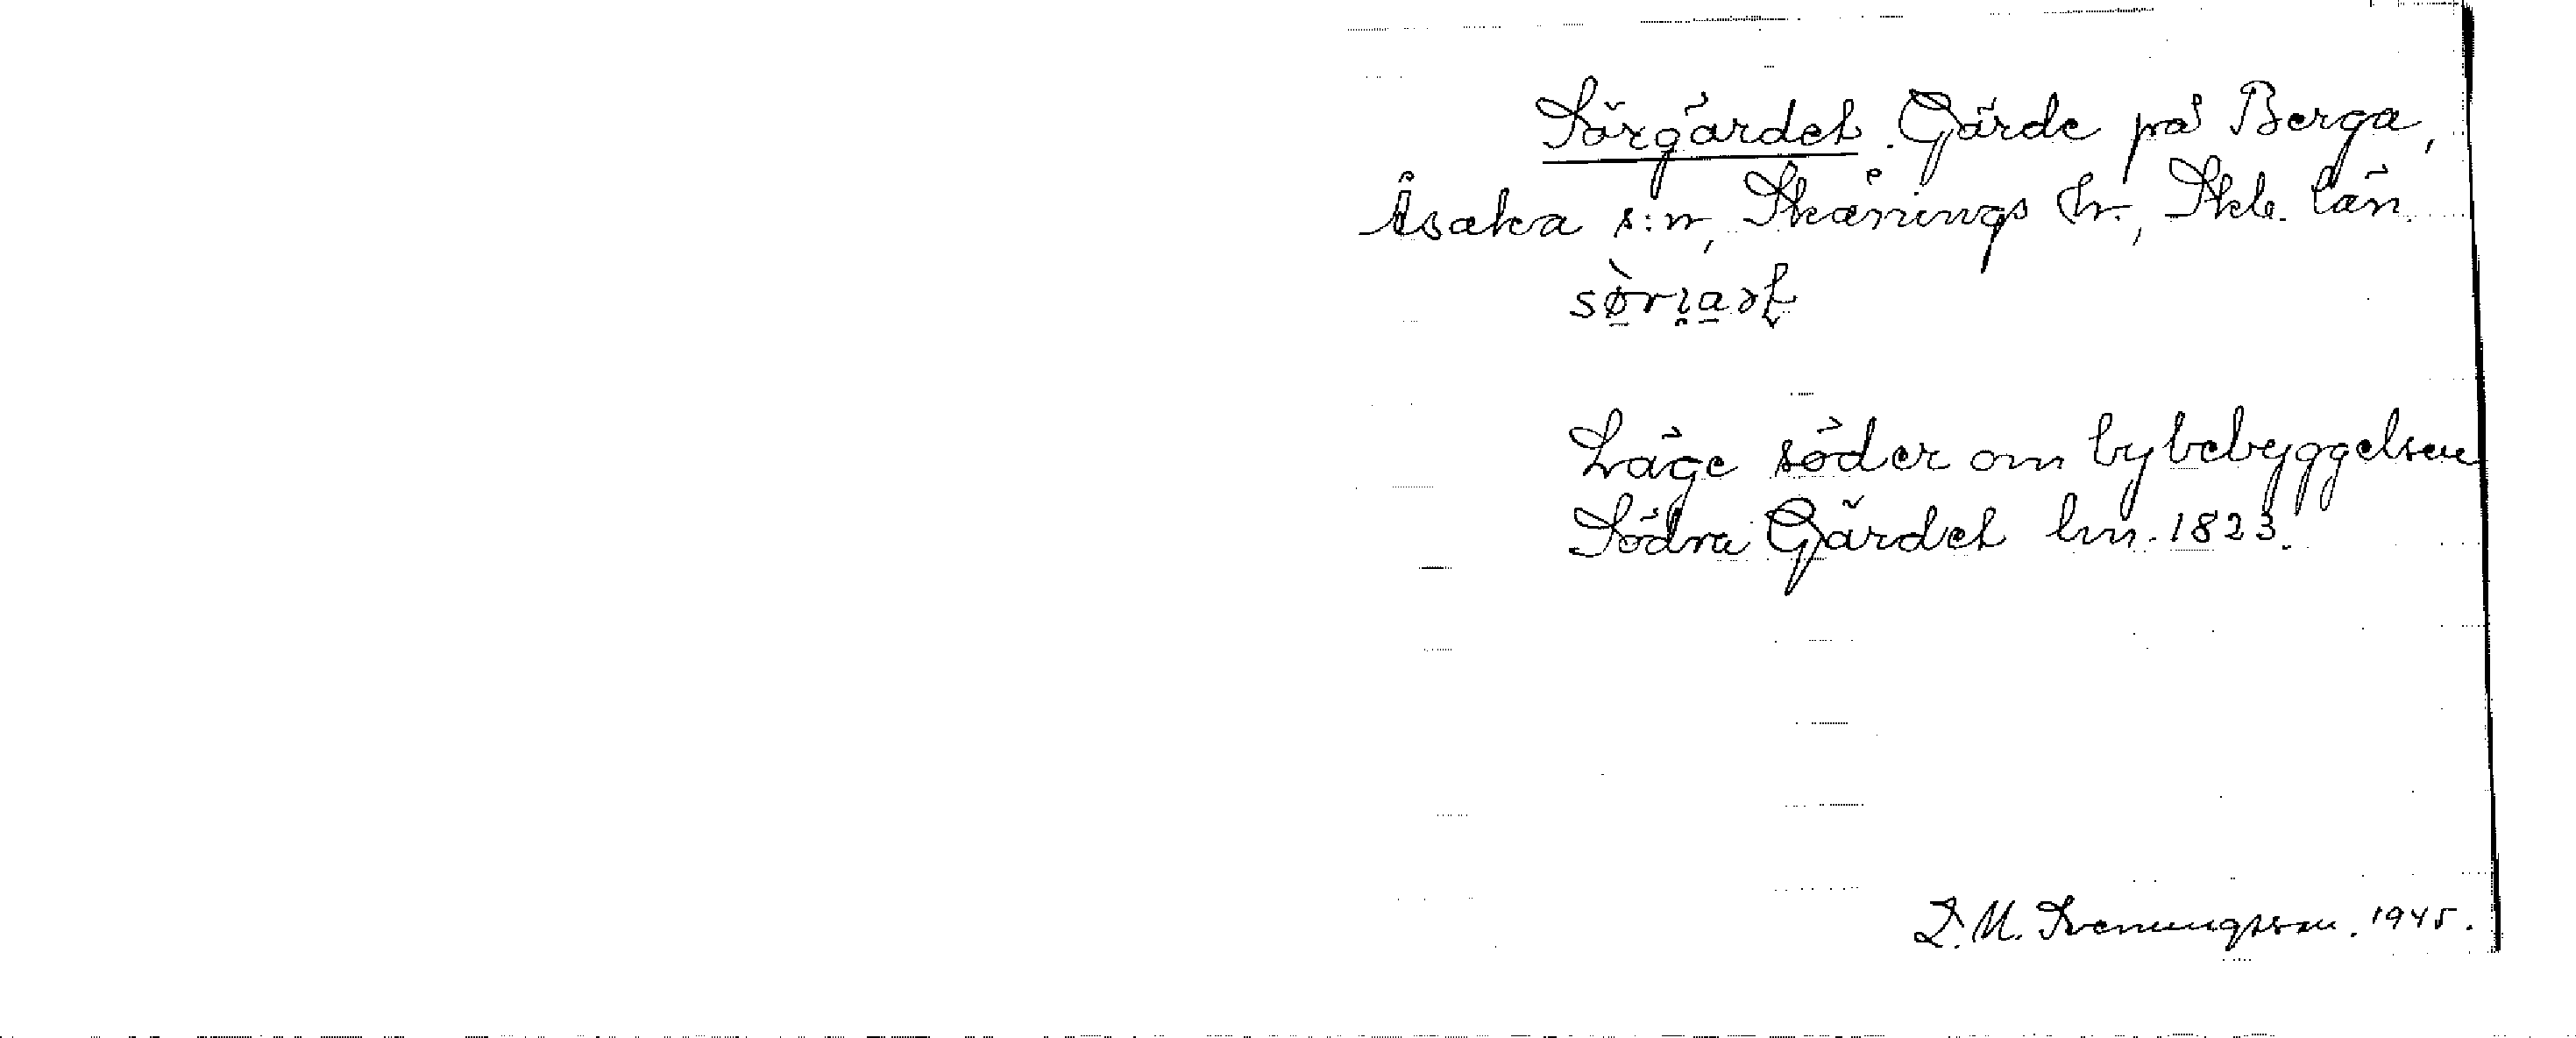 Sörgärdet. Gärde på Berga,
Åsaka s:n, Skånings hr., Skb. län.
Läge söder om bybebyggelsen
Södra Gärdet lm. 1823.
D. M. Svenungsson. 1945.